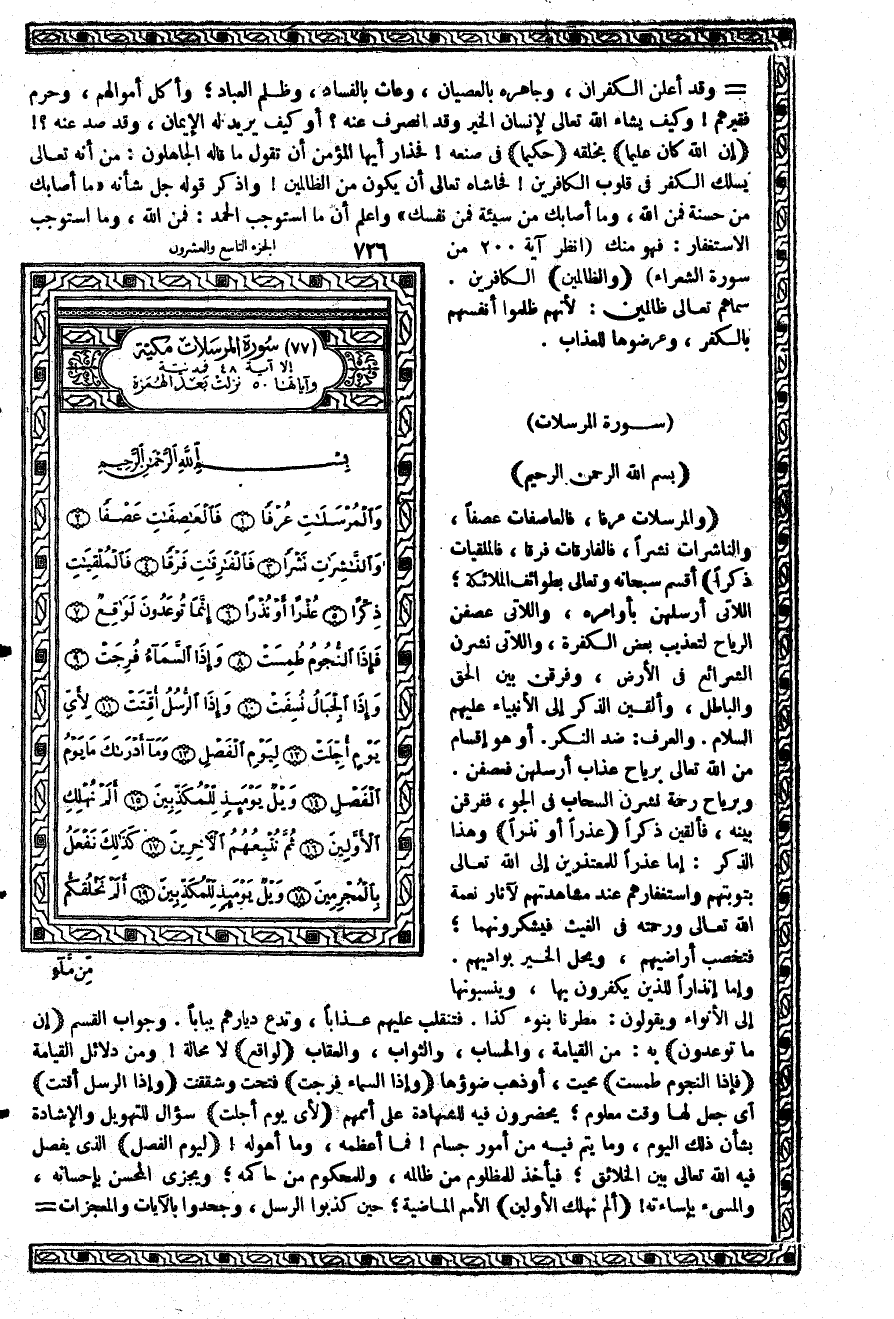 = وقد أعلن الكفران ، وجاهره بالعصيان ، وعاث بالفساد ، وظلم العباد ؛ وأكل أموالهم ، وحرم
فقيرهم ! وكيف يشاء الله تعالى لإنسان الخير وقد انصرف عنه ؟ أو كيف يريد له الإيمان ، وقد صد عنه ؟!
(إن الله كان عليما) بخلقه (حكيما) فى صنعه ! فحذار أيها المؤمن أن تقول ما قاله الجاهلون : من أنه تعالى
يسلك الكفر فى قلوب الكافرين ! فحاشاه تعالى أن يكون من الظالمين ! واذكر قوله جل شأنه «ما أصابك
من حسنة فمن الله ، وما أصابك من سيئة فمن نفسك» واعلم أن ما استوجب الحمد : فمن الله ، وما استوجب
الاستغفار : فهو منك (انظر آية ٢٠٠ من
سورة الشعراء) (والظالمين) الكافرين .
سماهم تعالى ظالمين : لأنهم ظلموا أنفسهم
بالكفر ، وعرضوها للعذاب .
(سورة المرسلات)
(بسم الله الرحمن الرحيم)
(والمرسلات عرفا ، فالعاصفات عصفاً ،
والناشرات نشراً ، فالفارقات فرقا ، فالملقيات
ذكراً) أقسم سبحانه وتعالى بطوائف الملائكة ؛
اللاتى أرسلهن بأوامره ، واللاتى عصفن
الرياح لتعذيب بعض الكفرة ، واللاتى نشرن
الشرائع فى الأرض ، وفرقن بين الحق
والباطل ، وألقين الذكر إلى الأنبياء عليهم
السلام . والعرف : ضد النكر. أو هو إقسام
من الله تعالى برياح عذاب أرسلهن فعصفن .
وبرياح رحمة نشرن السحاب فى الجو ، ففرقن
بينه ، فألقين ذكراً (عذراً أو نذراً) وهذا
الذكر : إما عذراً للمعتذرين إلى الله تعالى
بتوبتهم واستغفارهم عند مشاهدتهم لآثار نعمة
الله تعالى ورحمته فى الغيث فيشكرونهما ؛
فتخصب أراضيهم ، ويحل الخير بواديهم .
وإما إنذاراً للذين يكفرون بها ، وينسبونها
الجزء التاسع والعشرون ٧٢٦
(٧٧) سورة المرسلات مكية
إلا آية ٤٨ فمدنية
وآياتها ٥٠ نزلت بعد الهمزة
بِسْمِ اللَّهِ الرَّحْمَٰنِ الرَّحِيمِ
وَٱلْمُرْسَلَٰتِ عُرْفًا ١ فَٱلْعَٰصِفَٰتِ عَصْفًا ٢
وَٱلنَّٰشِرَٰتِ نَشْرًا ٣ فَٱلْفَٰرِقَٰتِ فَرْقًا ٤ فَٱلْمُلْقِيَٰتِ
ذِكْرًا ٥ عُذْرًا أَوْ نُذْرًا ٦ إِنَّمَا تُوعَدُونَ لَوَٰقِعٌ ٧
فَإِذَا ٱلنُّجُومُ طُمِسَتْ ٨ وَإِذَا ٱلسَّمَآءُ فُرِجَتْ ٩
وَإِذَا ٱلْجِبَالُ نُسِفَتْ ١٠ وَإِذَا ٱلرُّسُلُ أُقِّتَتْ ١١ لِأَىِّ
يَوْمٍ أُجِّلَتْ ١٢ لِيَوْمِ ٱلْفَصْلِ ١٣ وَمَآ أَدْرَىٰكَ مَا يَوْمُ
ٱلْفَصْلِ ١٤ وَيْلٌ يَوْمَئِذٍ لِّلْمُكَذِّبِينَ ١٥ أَلَمْ نُهْلِكِ
ٱلْأَوَّلِينَ ١٦ ثُمَّ نُتْبِعُهُمُ ٱلْءَاخِرِينَ ١٧ كَذَٰلِكَ نَفْعَلُ
بِٱلْمُجْرِمِينَ ١٨ وَيْلٌ يَوْمَئِذٍ لِّلْمُكَذِّبِينَ ١٩ أَلَمْ نَخْلُقكُّم
مِّن مَّآءٍ
إلى الأنواء ويقولون : مطرنا بنوء كذا . فتنقلب عليهم عذاباً ، وتدع ديارهم يباباً . وجواب القسم (إن
ما توعدون) به : من القيامة ، والحساب ، والثواب ، والعقاب (لواقع) لا محالة ! ومن دلائل القيامة
(فإذا النجوم طمست) محيت ، أو ذهب ضوؤها (وإذا السماء فرجت) فتحت وشققت (وإذا الرسل أقتت)
أى جعل لها وقت معلوم ؛ يحضرون فيه للشهادة على أممهم (لأى يوم أجلت) سؤال للتهويل والإشادة
بشأن ذلك اليوم ، وما يتم فيه من أمور جسام ! فما أعظمه ، وما أهوله ! (ليوم الفصل) الذى يفصل
فيه الله تعالى بين الخلائق ؛ فيأخذ للمظلوم من ظالمه ، وللمحكوم من حاكمه ؛ ويجزى المحسن بإحسانه ،
والمسىء بإساءته! (ألم نهلك الأولين) الأمم الماضية ؛ حين كذبوا الرسل ، وجحدوا بالآيات والمعجزات =